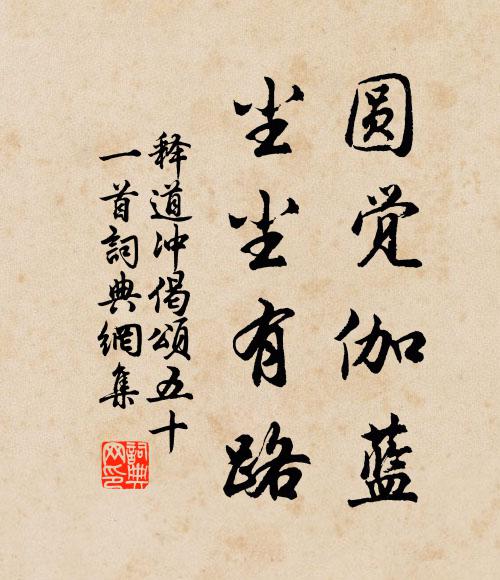 圆觉伽蓝
尘尘有路
释道冲偈颂五十
一首詞典網集
詞典
网印